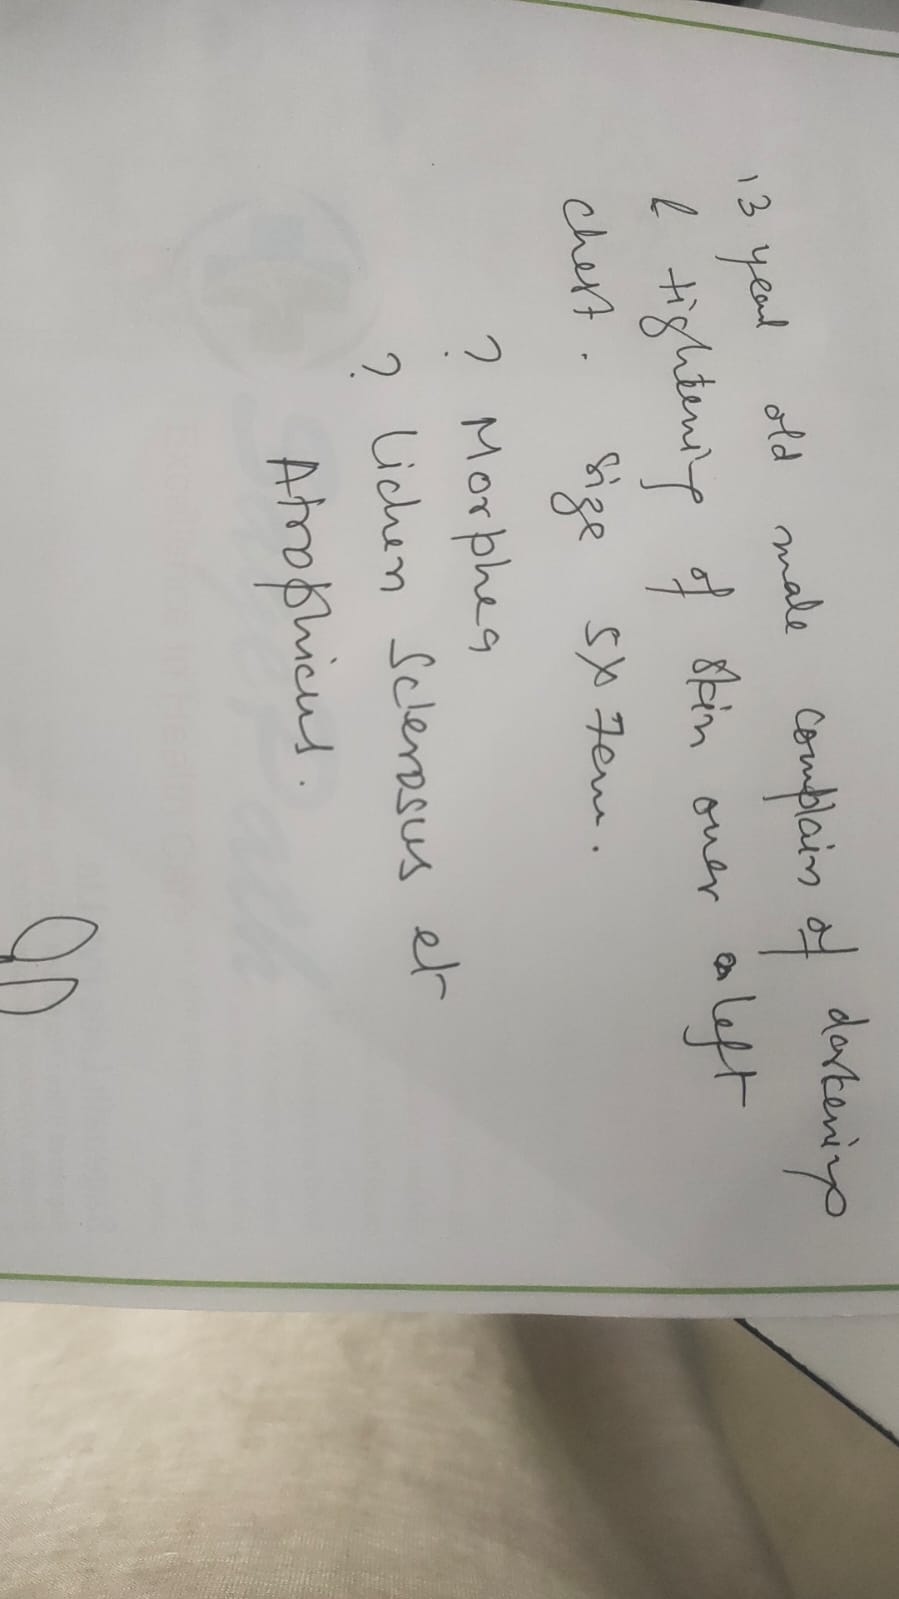 13 year old male complain of darkening
& tightening of skin over left
chest. size 5x7cm.
? Morphea
? Lichen Sclerosus et
Atrophicus.